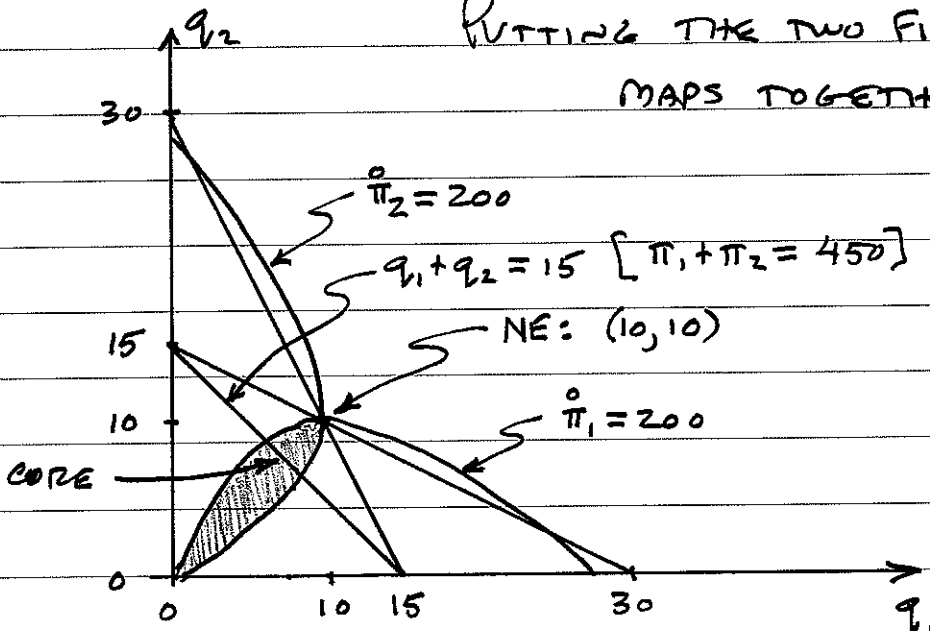 q₂
PUTTING THE TWO FI
MAPS TOGETH
30
π̊₂ = 200
q₁ + q₂ = 15 [π₁ + π₂ = 450]
15
NE: (10,10)
10
π̊₁ = 200
CORE
0
0 10 15 30
q₁